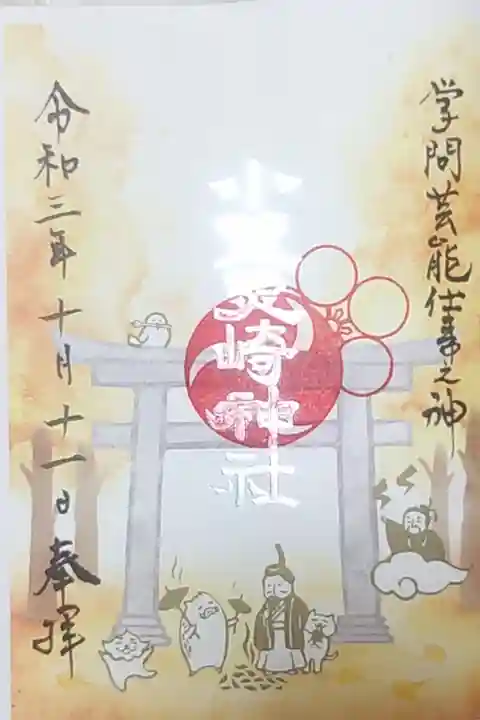 学問芸能仕事之神
小夏崎神社
令和三年十月十一日奉拝